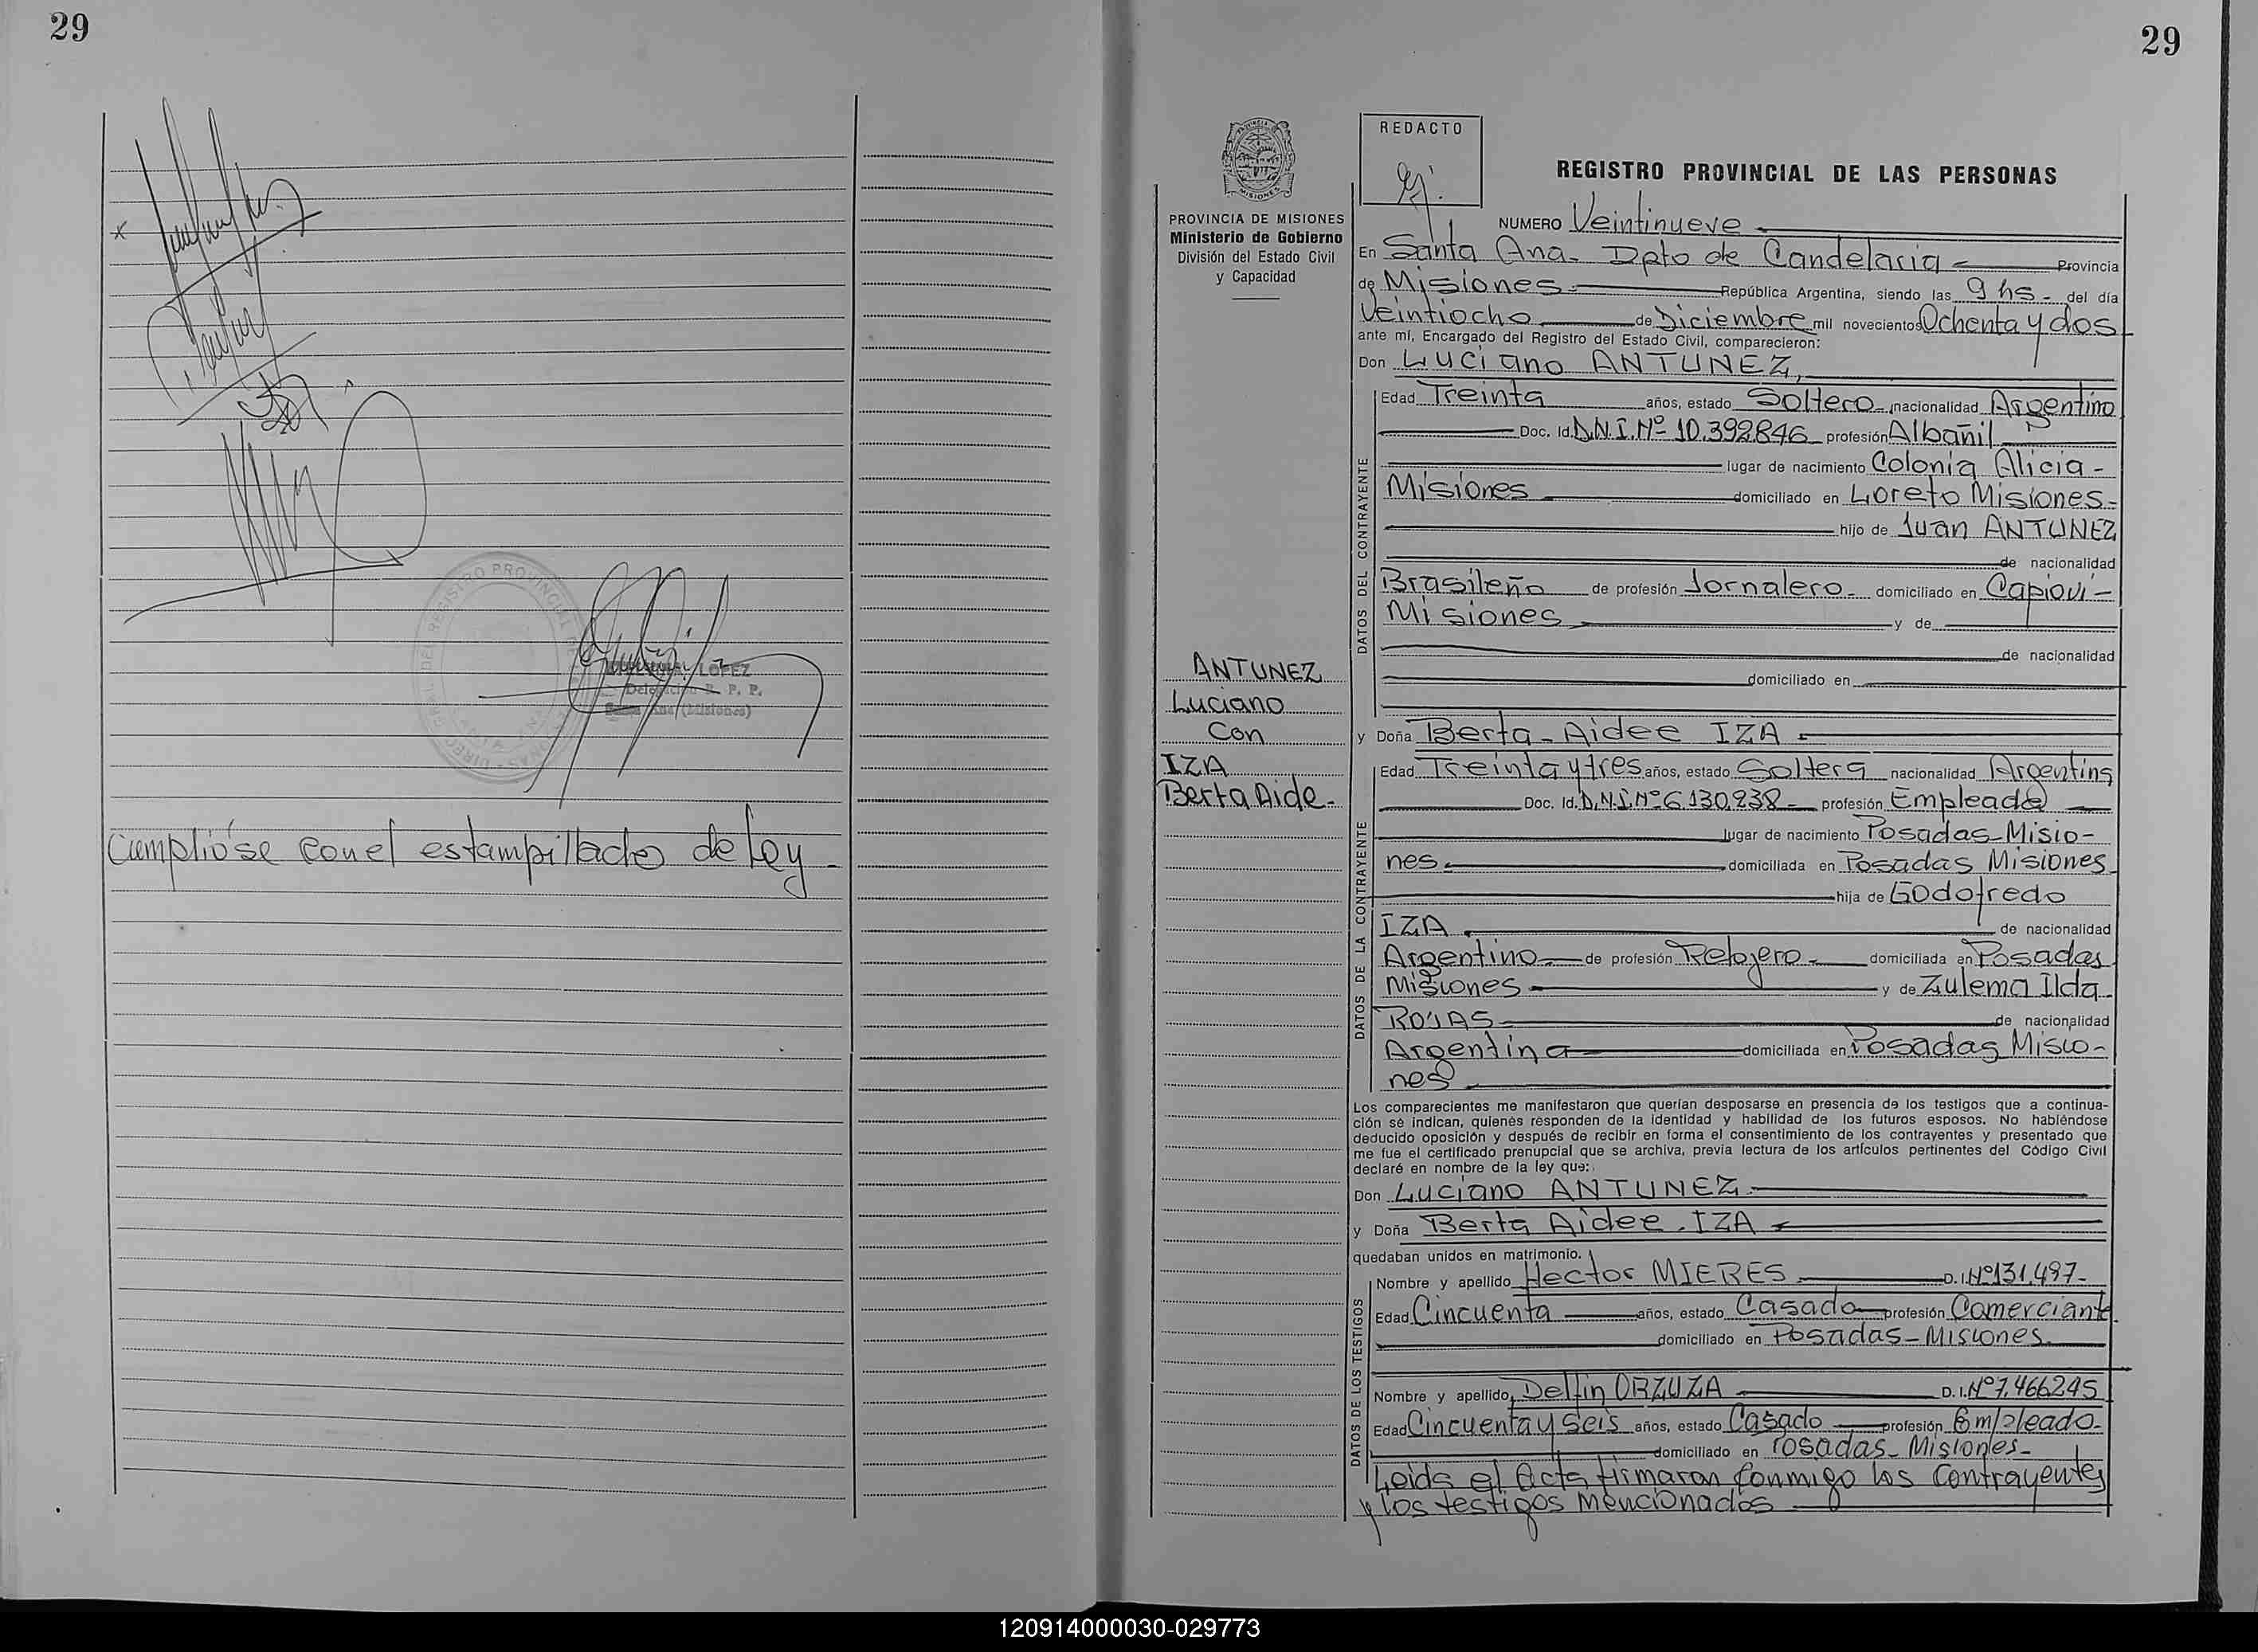 29
Cumplióse con el estampillado de Ley -
LOPEZ
Delegación R. P. P.
Santa Ana (Misiones)
29
PROVINCIA DE MISIONES
Ministerio de Gobierno
División del Estado Civil
y Capacidad
ANTUNEZ
Luciano
Con
IZA
Berta Aide-
REDACTO
REGISTRO PROVINCIAL DE LAS PERSONAS
NUMERO Veintinueve
En Santa Ana - Dpto de Candelaria - Provincia
de Misiones - República Argentina, siendo las 9 hs - del día
Veintiocho de Diciembre mil novecientos Ochenta y dos
ante mí, Encargado del Registro del Estado Civil, comparecieron:
Don Luciano ANTUNEZ,
DATOS DEL CONTRAYENTE
Edad Treinta años, estado Soltero - nacionalidad Argentino
Doc. Id. D.N.I. Nº 10.392.846 - profesión Albañil
lugar de nacimiento Colonia Alicia -
Misiones domiciliado en Loreto Misiones -
hijo de Juan ANTUNEZ
de nacionalidad
Brasileño de profesión Jornalero - domiciliado en Capioví -
Misiones y de
de nacionalidad
domiciliado en
y Doña Berta - Aidee IZA -
DATOS DE LA CONTRAYENTE
Edad Treinta y tres años, estado Soltera nacionalidad Argentina
Doc. Id. D.N.I. Nº 6.130.238 - profesión Empleada
lugar de nacimiento Posadas - Misio-
nes - domiciliada en Posadas Misiones
hija de Godofredo
IZA de nacionalidad
Argentino - de profesión Relojero - domiciliada en Posadas
Misiones y de Zulema Ilda
ROJAS de nacionalidad
Argentina domiciliada en Posadas Misio-
nes
Los comparecientes me manifestaron que querían desposarse en presencia de los testigos que a continua-
ción se indican, quienes responden de la identidad y habilidad de los futuros esposos. No habiéndose
deducido oposición y después de recibir en forma el consentimiento de los contrayentes y presentado que
me fue el certificado prenupcial que se archiva, previa lectura de los artículos pertinentes del Código Civil
declaré en nombre de la ley que:
Don Luciano ANTUNEZ
y Doña Berta Aidee IZA
quedaban unidos en matrimonio.
DATOS DE LOS TESTIGOS
Nombre y apellido Hector MIERES D. I. Nº 131.497-
Edad Cincuenta años, estado Casado profesión Comerciante
domiciliado en Posadas - Misiones
Nombre y apellido Delfin ORZUZA D. I. Nº 7.466245
Edad Cincuenta y seis años, estado Casado profesión Empleado -
domiciliado en Posadas - Misiones -
Leida el Acta firmaron conmigo los contrayentes
y los testigos mencionados
120914000030-029773